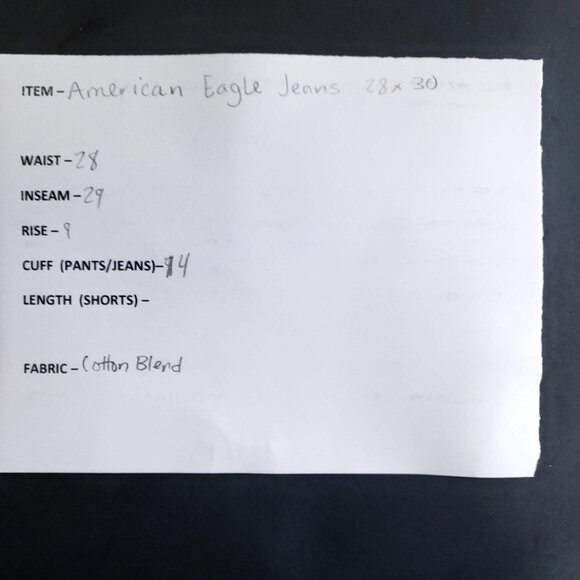 ITEM – American Eagle Jeans 28 x 30
WAIST – 28
INSEAM – 29
RISE – 9
CUFF (PANTS/JEANS) – 14
LENGTH (SHORTS) –
FABRIC – Cotton Blend